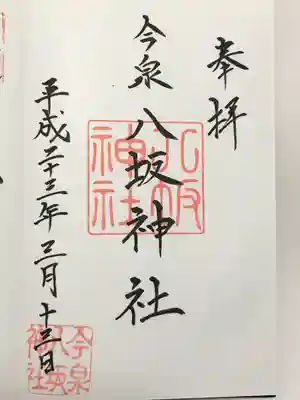 奉拝
今泉
八坂神社
八坂神社
平成二十三年三月十三日
今泉八坂神社